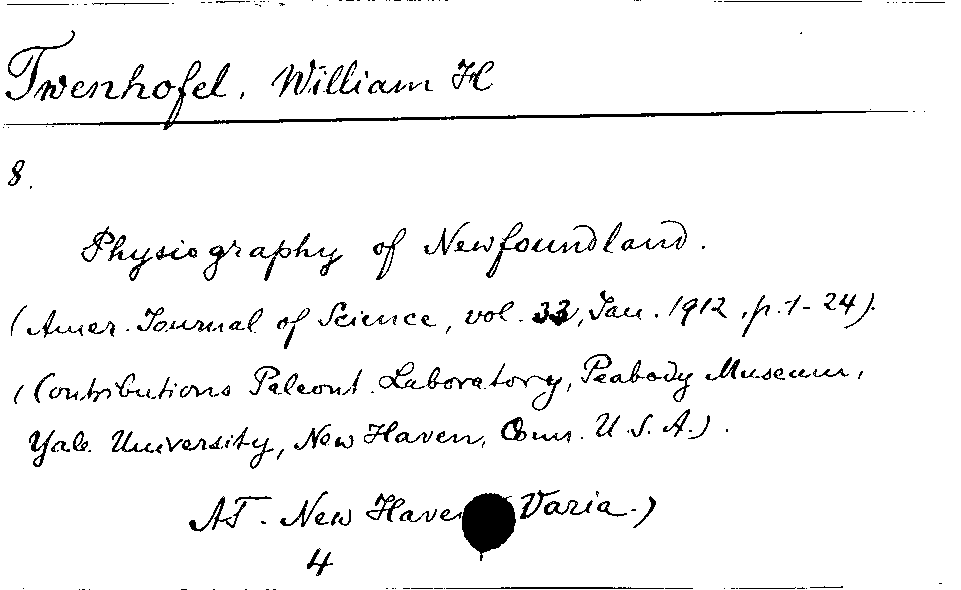 Twenhofel, William H
8.
Physiography of Newfoundland.
(Amer. Journal of Science, vol. 33, Jan. 1912, p. 1-24).
(Contributions Paleont. Laboratory, Peabody Museum,
Yale University, New Haven, Conn. U. S. A.).
AT. New Haven (Varia.)
4